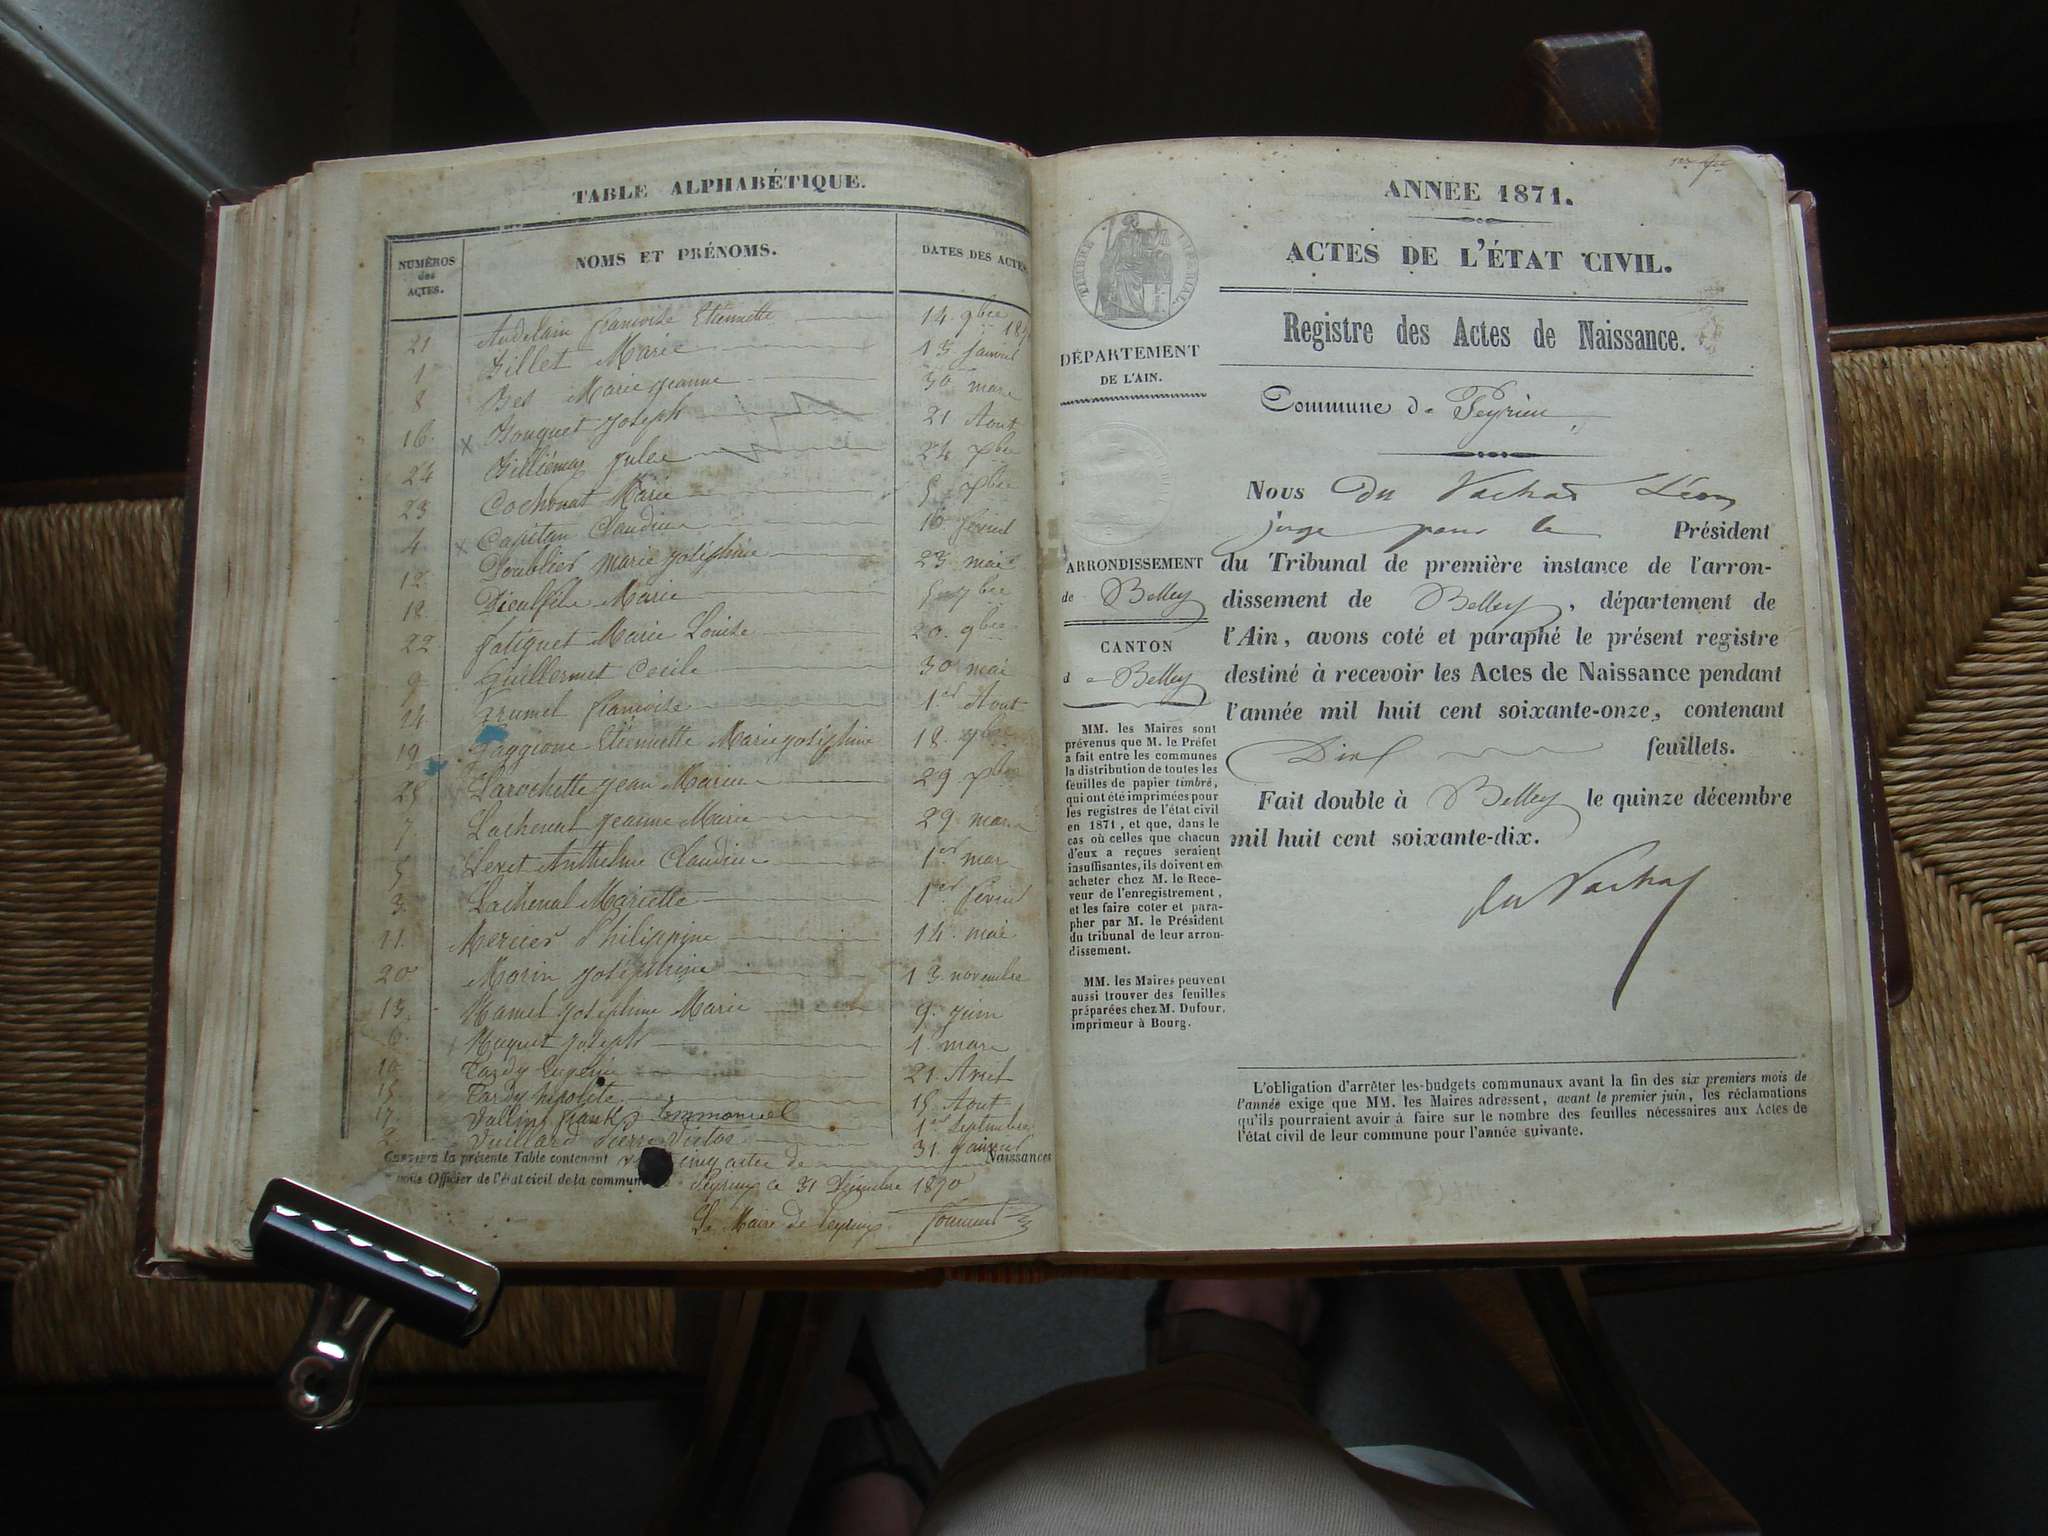 TABLE ALPHABÉTIQUE.
NUMÉROS des ACTES. NOMS ET PRÉNOMS. DATES DES ACTES
21 Françoise Etiennette 14 9bre
1 Billet Marie 13 janvier
8 Bes Marie Jeanne 30 mars
16 Bouquet Joseph 21 Aout
24 Jules 24 Xbre
23 Cochonat Marie 5 Xbre
4 Capitan Claudine 16 février
12 Doublier Marie Joséphine 23 mai
18 Marie 7bre
22 Fatiguet Marie Louise 20 9bre
9 Guillermet Cécile 30 mai
14 Grumel Françoise 1er Aout
19 Jaggione Etiennette Marie Joséphine 18
25 Larochette Jean Marie 29 Xbre
7 Lachenal Jeanne Marie 29 mars
5 Levet Anthelme Claudine 1er mars
3 Lachenal Mariette 1er février
11 Mercier Philippine 14 mai
20 Morin Joséphine 13 novembre
13 Joséphine Marie 9 juin
6 Joseph 1 mars
10 Tardy Eugénie 21 Avril
15 Tardy hipolite 15 Aout
17 Emmanuel 1er Septembre
2 Vuillard Pierre Victor 31 Janvier
CERTIFIÉ la présente Table contenant cinq actes de Naissances
nous Officier de l'état civil de la commune Peyrieu ce 31 Décembre 1870
Le Maire de Peyrieu
ANNÉE 1871.
ACTES DE L'ÉTAT CIVIL.
Registre des Actes de Naissance.
TIMBRE IMPÉRIAL.
DÉPARTEMENT
DE L'AIN.
Commune de Peyrieu
ARRONDISSEMENT
de Belley
CANTON
de Belley
MM. les Maires sont
prévenus que M. le Préfet
a fait entre les communes
la distribution de toutes les
feuilles de papier timbré,
qui ont été imprimées pour
les registres de l'état civil
en 1871, et que, dans le
cas où celles que chacun
d'eux a reçues seraient
insuffisantes, ils doivent en
acheter chez M. le Rece-
veur de l'enregistrement,
et les faire coter et para-
pher par M. le Président
du tribunal de leur arron-
dissement.
MM. les Maires peuvent
aussi trouver des feuilles
préparées chez M. Dufour,
imprimeur à Bourg.
Nous Du Vachat Léon
juge pour le Président
du Tribunal de première instance de l'arron-
dissement de Belley, département de
l'Ain, avons coté et paraphé le présent registre
destiné à recevoir les Actes de Naissance pendant
l'année mil huit cent soixante-onze, contenant
Dix feuillets.
Fait double à Belley le quinze décembre
mil huit cent soixante-dix.
du Vachat
L'obligation d'arrêter les budgets communaux avant la fin des six premiers mois de
l'année exige que MM. les Maires adressent, avant le premier juin, les réclamations
qu'ils pourraient avoir à faire sur le nombre des feuilles nécessaires aux Actes de
l'état civil de leur commune pour l'année suivante.